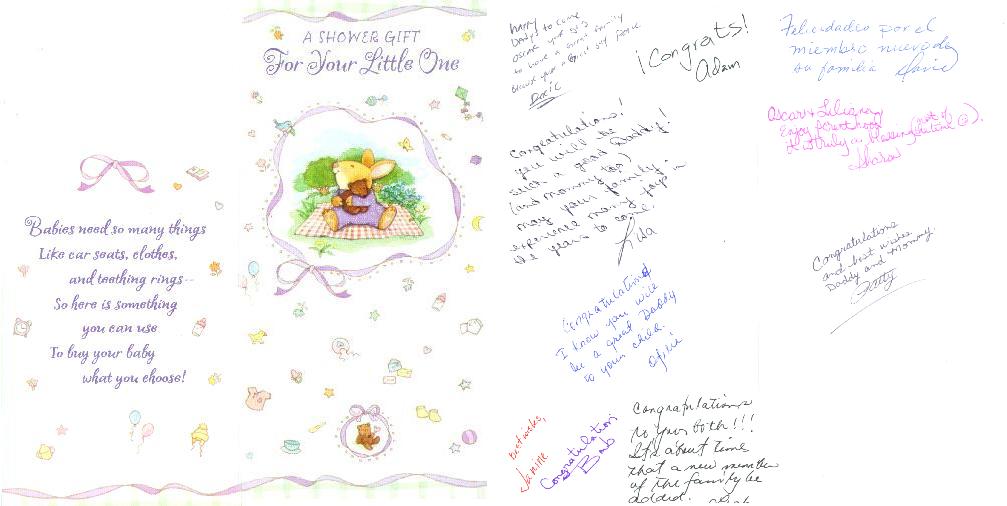 Babies need so many things
Like car seats, clothes,
and teething rings--
So here is something
you can use
To buy your baby
what you choose!
A SHOWER GIFT
For Your Little One
HAPPY
Daddy to come
to have a family
¡Congrats!
Adam
Felicidades por el
miembro nuevo de
su familia David
Oscar &
Enjoy
truly a blessing
Sharon
Congratulations!
you will be
such a good Daddy!
(and mommy too)
may your family
experience many joys in
the years to come!
Lisa
Congratulations
and best wishes
Daddy and Mommy
Patty
Congratulations
I know you will
be a great Daddy
to your child.
Best wishes,
Janine
Congratulations
Bob
Congraplations
to you both!!!
It's about time
that a new member
of the family be
added.